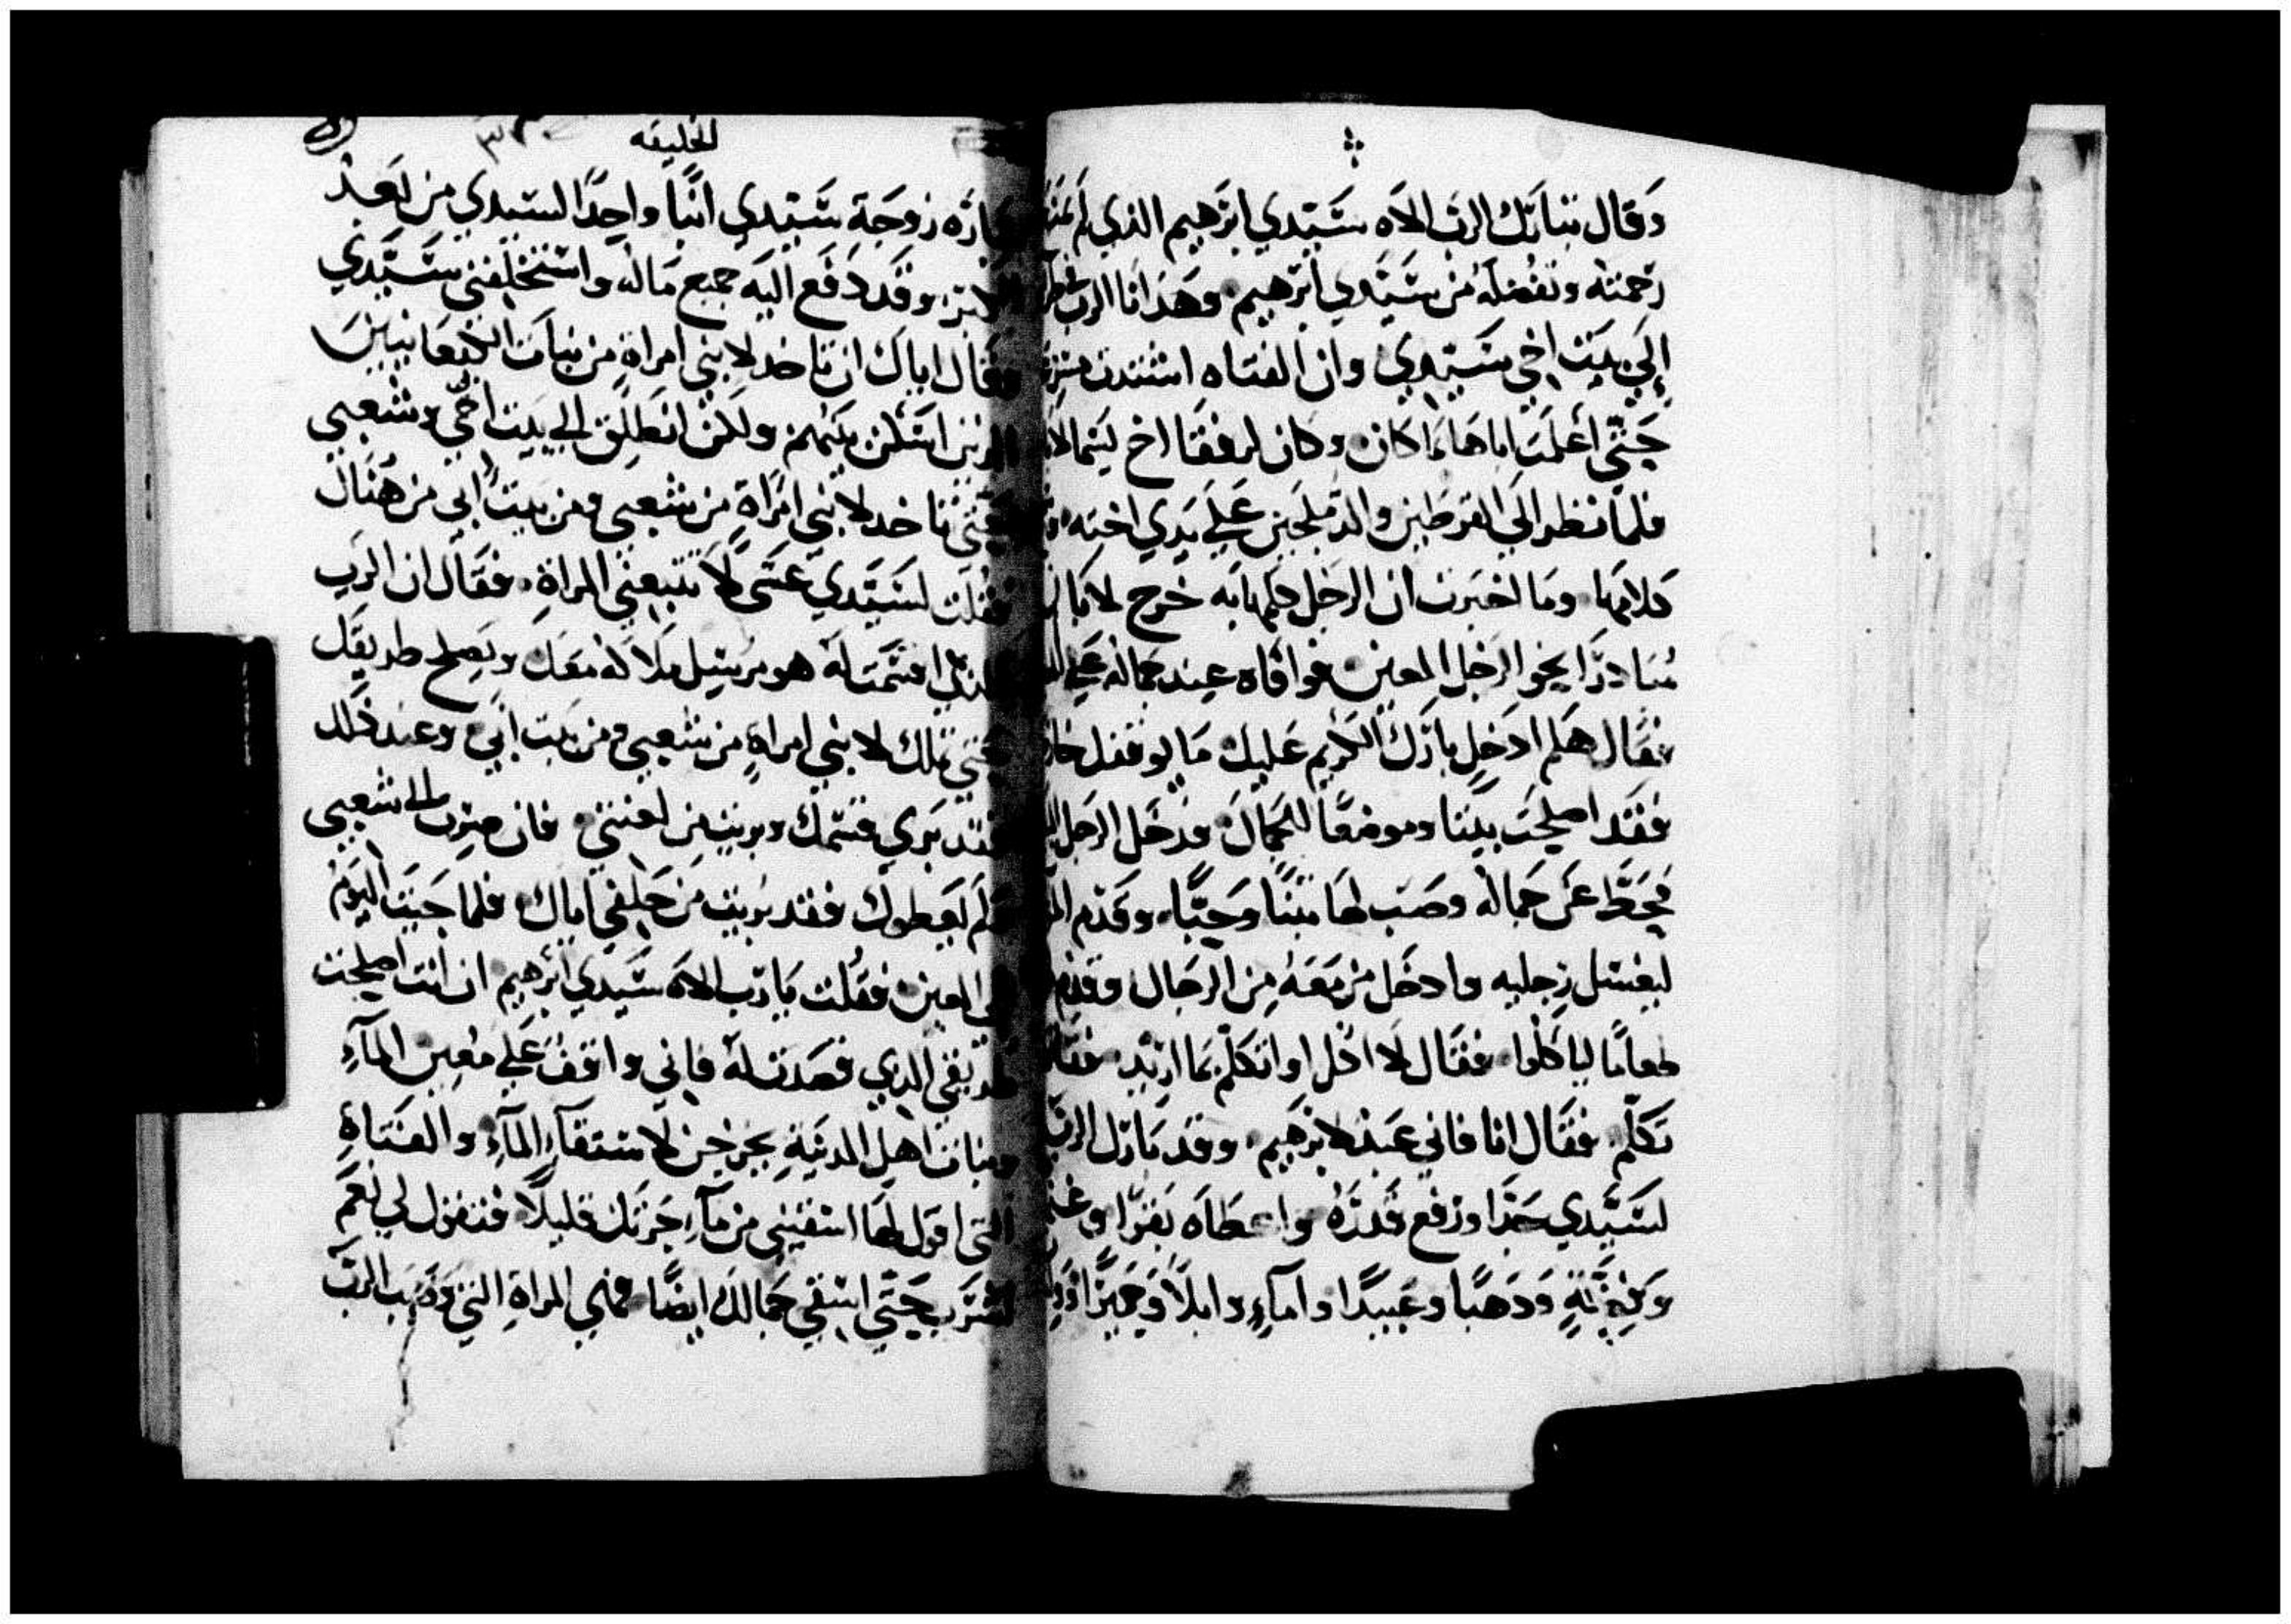 وقال تبارك الرب الاه سَيّدي ابرهيم الذي لم
رحمته وتفضله من سَيّدي ابرهيم وهَذا انا الرب
إلَي بيت اخي سَيّدي وان الفتاه اشتدت
حَتّي أعلمَت اباهَا بمَا كان وكان لرفقا اخ يسَما
فلمّا نظر الَي القرطين والدملجين عَلَي يَدي اخته
كلامها ومَا اخبرت ان الرجل كلمها به خرج
مُبَادرًا يخو الرَجل المعين فوافاه عِند جماله عَلي
فقال هَلم ادخل بارَك الكريم عليك مَا لوقفك
فقَد اصلحَت بيتا وموضعًا للجمال فدخل الرجل
فحَطّ عَن جماله وصَب لهَا تبنًا وحَبًّا وقدم
ليغسل رجليه وادخَل من معَهُ مِن الرجال وقدم
طعامًا لياكلوا فقال لا اكل او اتكلم بمَا اريد
تكلم فقال انا فاني عَبد لابرهيم وقد بَارك الرب
لسَيّدي جدًا ورفع قدرَهُ واعطاه بَقرًا
وَفِضّةٍ وَدهبًا وعَبيدًا وامآءٍ وابلًا وَحَميرًا
الخليقه
سَارَه زوجَة سَيّدي ابنًا واحِدًا لسيدي من بَعد
الكبَر وقد دَفع اليَه جميع مَاله واستخلفني سَيّدي
وقال اياك ان تاخد لابني امراةٍ من بنات الكنعانيين
الدين اسَكن بينهم ولكن انطلق الي بيت ابي وشعبي
حَتي تاخد لابني امراةٍ من شعبي ومن بيت ابي من هُناك
فقلت لسَيّدي عسَي لا تتبعني المراة فقال ان الرب
الذي اعتمَت له هو مرسِل ملاكه معَك ويَصلح طريقك
حتي تملك لابني امراةٍ من شعبي ومن بيت ابي وعند ذلك
فقد بَري قسَمك وبريت من لعنتي فان صرت الي شعبي
فلَم يعطوك فقد بريت من حَلفي اياك فلما جيَت اليوم
الي المعين فقُلت يَا رَب الاه سَيدي ابرهيم ان انت اصلحت
طريقي الدي قصَدت له فاني واقفُ عَلي مُعِين المآءِ
وبنات اهل المدينَةِ يخرجن لاستقآءِ المآءِ والفتاةِ
التي اقول لهَا اسقيني من مآءِ جَرتك قليلًا فتقول لي نعَم
اشرَب حَتي اسقي جمالك ايضًا فهي المراةِ التي وَهَبَ الرب